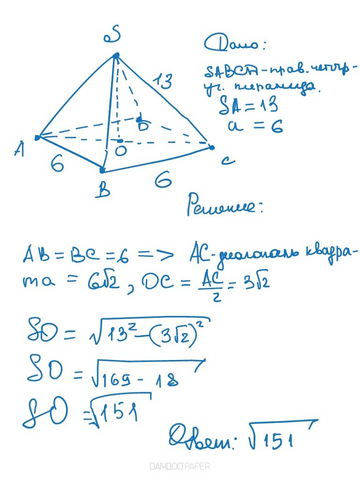 S
Дано:
13
SABCD-прав. четыр-
уг. пирамида.
SA = 13
a = 6
A
D
O
C
6
B
6
Решение:
AB = BC = 6 => AC-диагональ квадра-
та = 6√2, OC = AC/2 = 3√2
SO = √13² - (3√2)²
SO = √169 - 18
SO = √151
Ответ: √151
BAMBOO PAPER